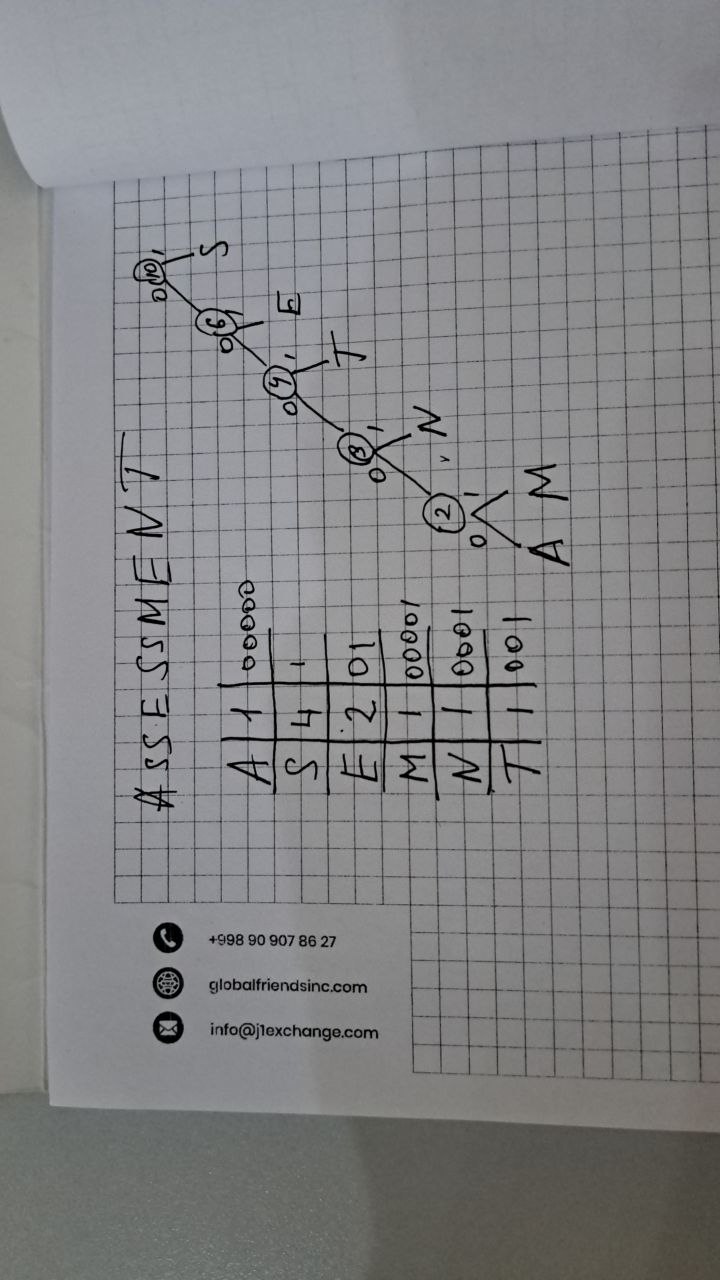 ASSESSMENT
A 1 00000
S 4 1
E 2 01
M 1 00001
N 1 0001
T 1 001
10
0 1
S
6
0 1
E
4
0 1
T
3
0 1
N
2
0 1
A M
+998 90 907 86 27
globalfriendsinc.com
info@j1exchange.com